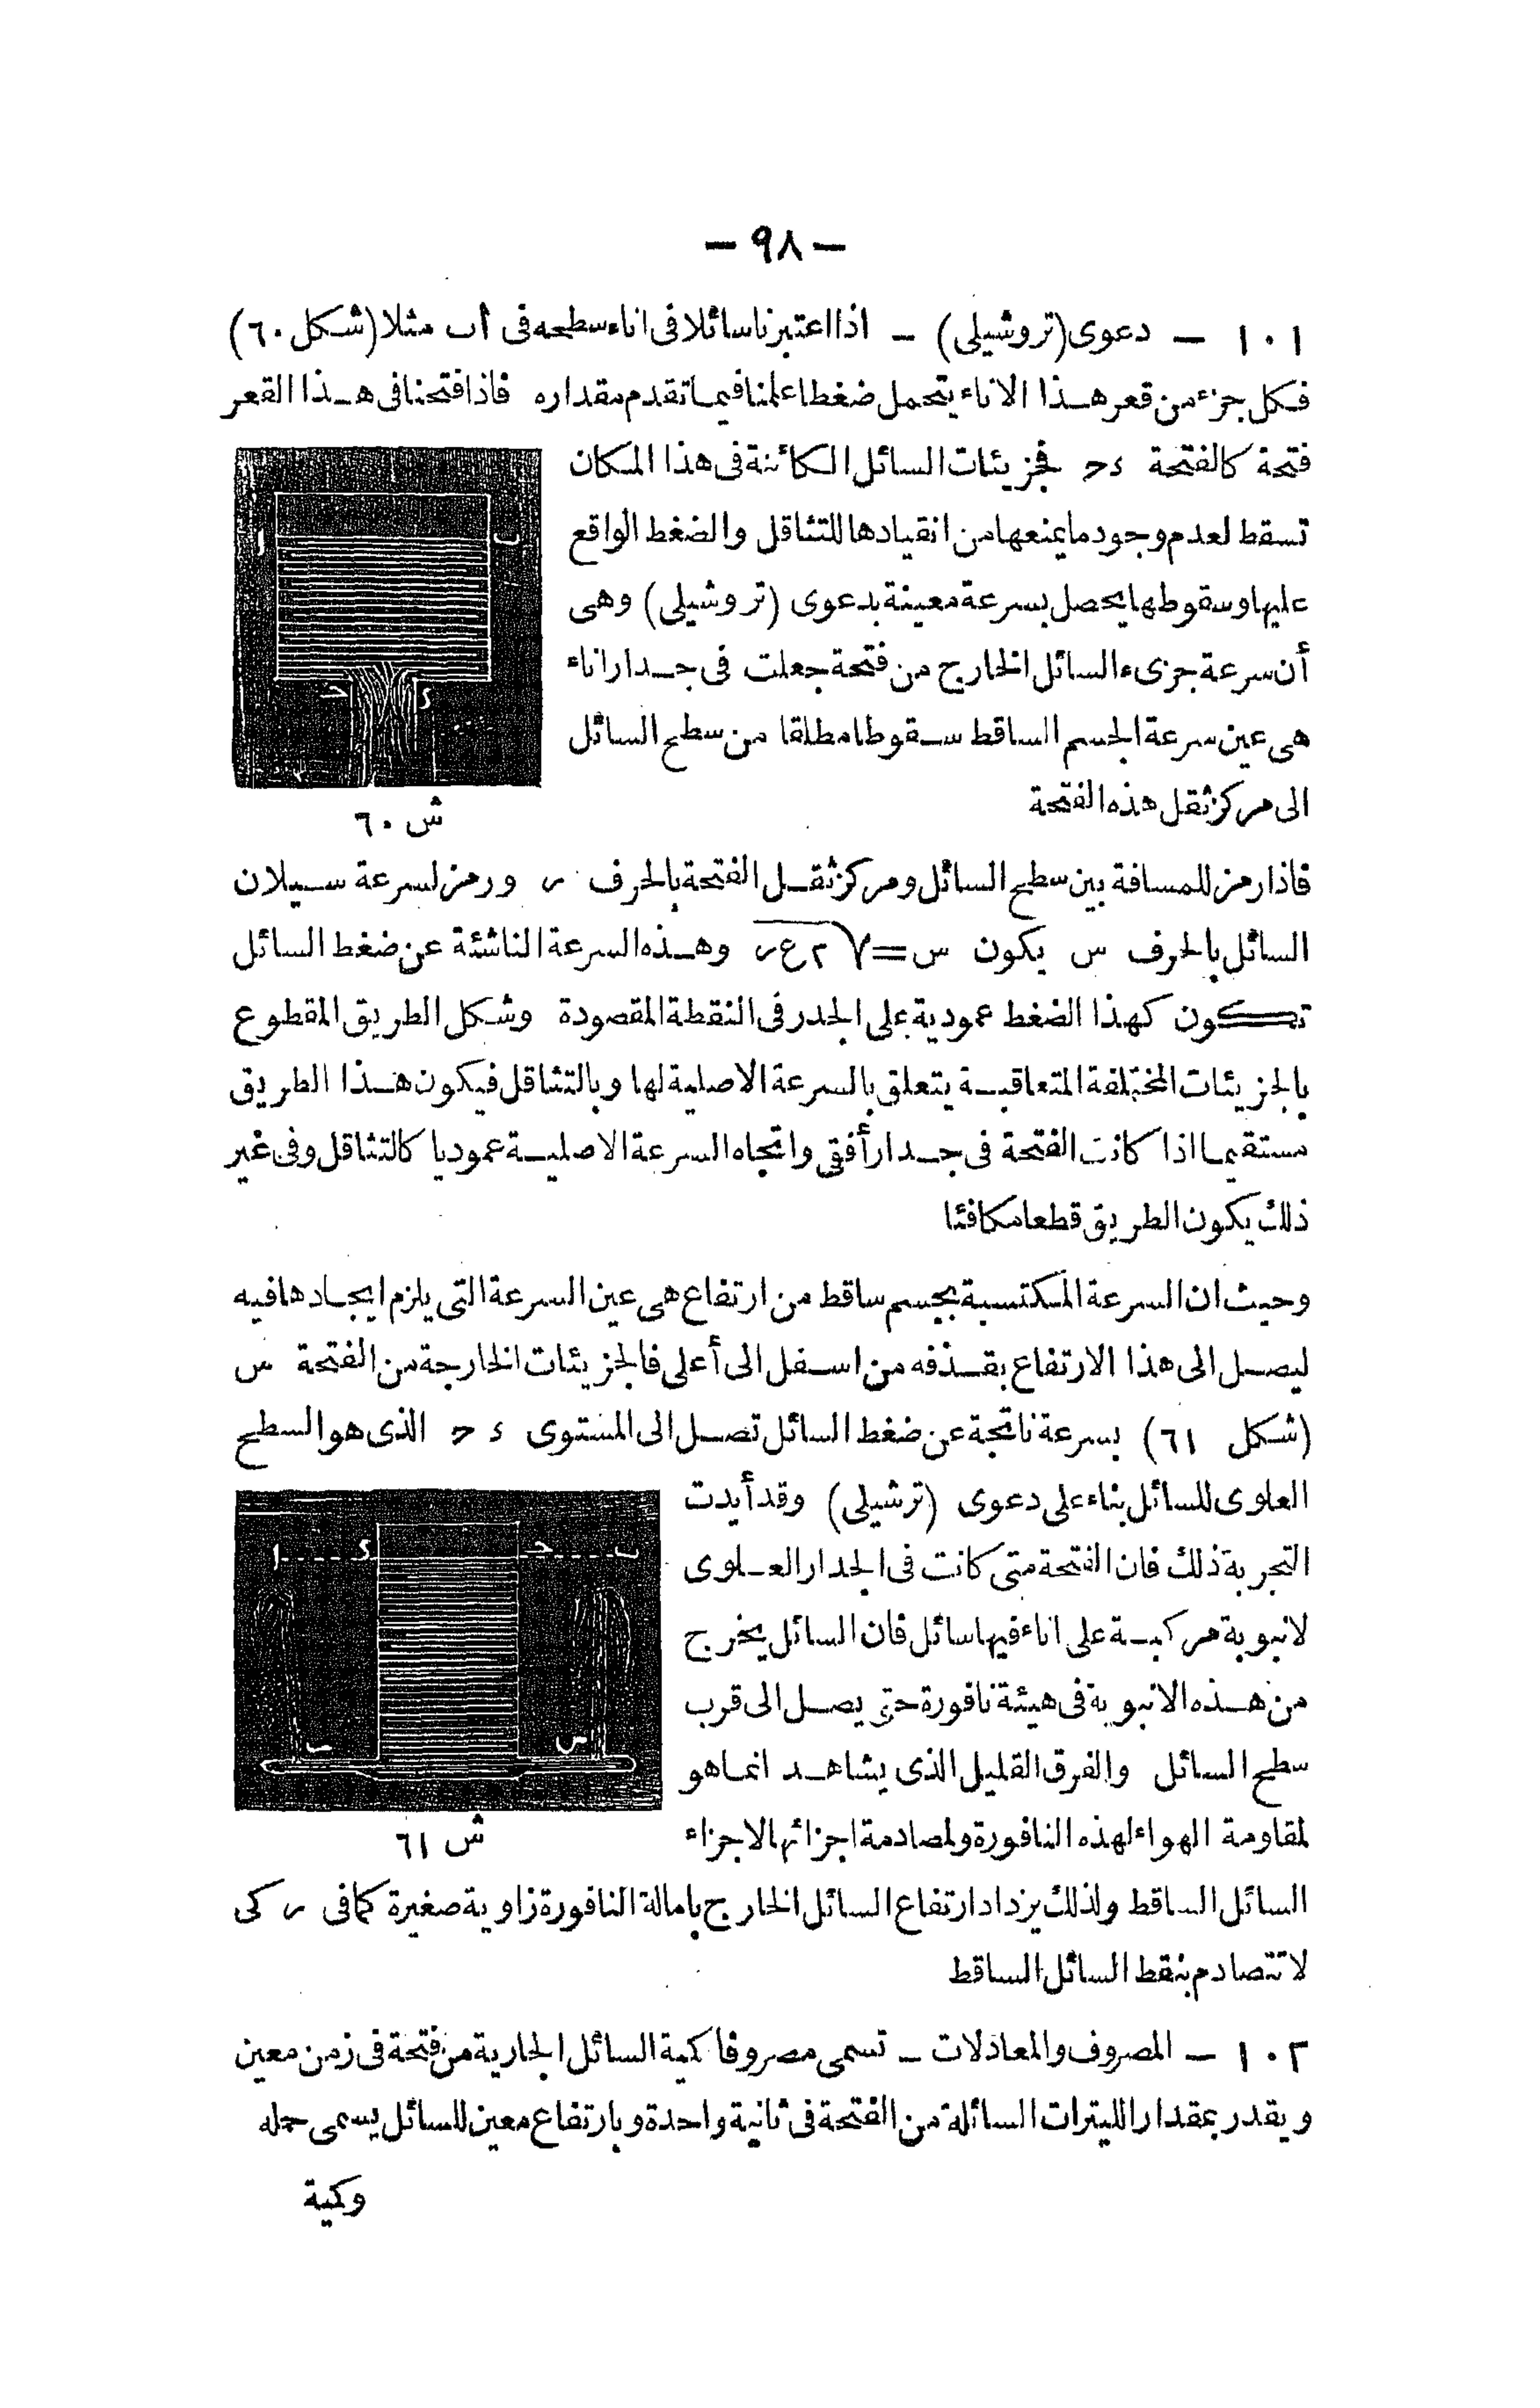 — ٩٨ —
١٠١ — دعوى (تروشيلى) — اذا اعتبرنا سائلا فى اناء سطحه فى أب مثلا (شكل ٦٠)
فكل جزء من قعر هذا الاناء يتحمل ضغطا علمنا فيما تقدم مقداره فاذا فتحنا فى هذا القعر
فتحة كالفتحة ء ح فجزيئات السائل الكائنة فى هذا المكان
تسقط لعدم وجود ما يمنعها من انقيادها للتثاقل والضغط الواقع
عليها وسقوطها يحصل بسرعة معينة بدعوى (تروشيلى) وهى
أن سرعة جزىء السائل الخارج من فتحة جعلت فى جدار اناء
هى عين سرعة الجسم الساقط سقوطا مطلقا من سطح السائل
الى مركز ثقل هذه الفتحة
ا
ب
ح
ء
ش ٦٠
فاذا رمز للمسافة بين سطح السائل ومركز ثقل الفتحة بالحرف ر ورمز لسرعة سيلان
السائل بالحرف س يكون س = √٢ع ر وهذه السرعة الناشئة عن ضغط السائل
تكون كهذا الضغط عمودية على الجدر فى النقطة المقصودة وشكل الطريق المقطوع
بالجزيئات المختلفة المتعاقبة يتعلق بالسرعة الاصلية لها وبالتثاقل فيكون هذا الطريق
مستقيما اذا كانت الفتحة فى جدار أفقى واتجاه السرعة الاصلية عموديا كالتثاقل وفى غير
ذلك يكون الطريق قطعا مكافئا
وحيث ان السرعة المكتسبة بجسم ساقط من ارتفاع هى عين السرعة التى يلزم ايجادها فيه
ليصل الى هذا الارتفاع بقذفه من اسفل الى أعلى فالجزيئات الخارجة من الفتحة س
(شكل ٦١) بسرعة ناتجة عن ضغط السائل تصل الى المستوى ء ح الذى هو السطح
العلوى للسائل بناء على دعوى (ترشيلى) وقد أيدت
التجربة ذلك فان الفتحة متى كانت فى الجدار العلوى
لانبوبة مركبة على اناء فيها سائل فان السائل يخرج
من هذه الانبوبة فى هيئة نافورة حتى يصل الى قرب
سطح السائل والفرق القليل الذى يشاهد انما هو
لمقاومة الهواء لهذه النافورة ولمصادمة اجزائها لاجزاء
ا
ء
ح
ب
س
ش ٦١
السائل الساقط ولذلك يزداد ارتفاع السائل الخارج بامالة النافورة زاوية صغيرة كما فى ر كى
لا تتصادم بنقط السائل الساقط
١٠٢ — المصروف والمعادلات — تسمى مصروفا كمية السائل الجارية من فتحة فى زمن معين
ويقدر بمقدار الليترات السائلة من الفتحة فى ثانية واحدة وبارتفاع معين للسائل يسمى حمله
وكمية